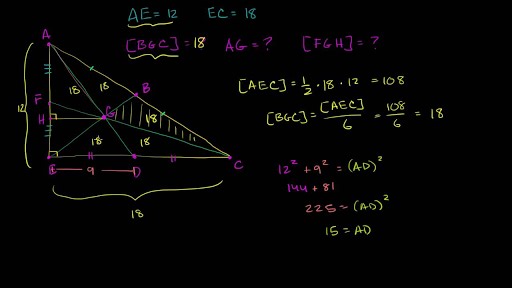 AE = 12 EC = 18
[BGC] = 18 AG = ? [FGH] = ?
A
[AEC] = 1/2 · 18 · 12 = 108
[BGC] = [AEC]/6 = 108/6 = 18
18 18 B
F G
12 H 18
18 18
E 9 D C
18
12² + 9² = (AD)²
144 + 81
225 = (AD)²
15 = AD